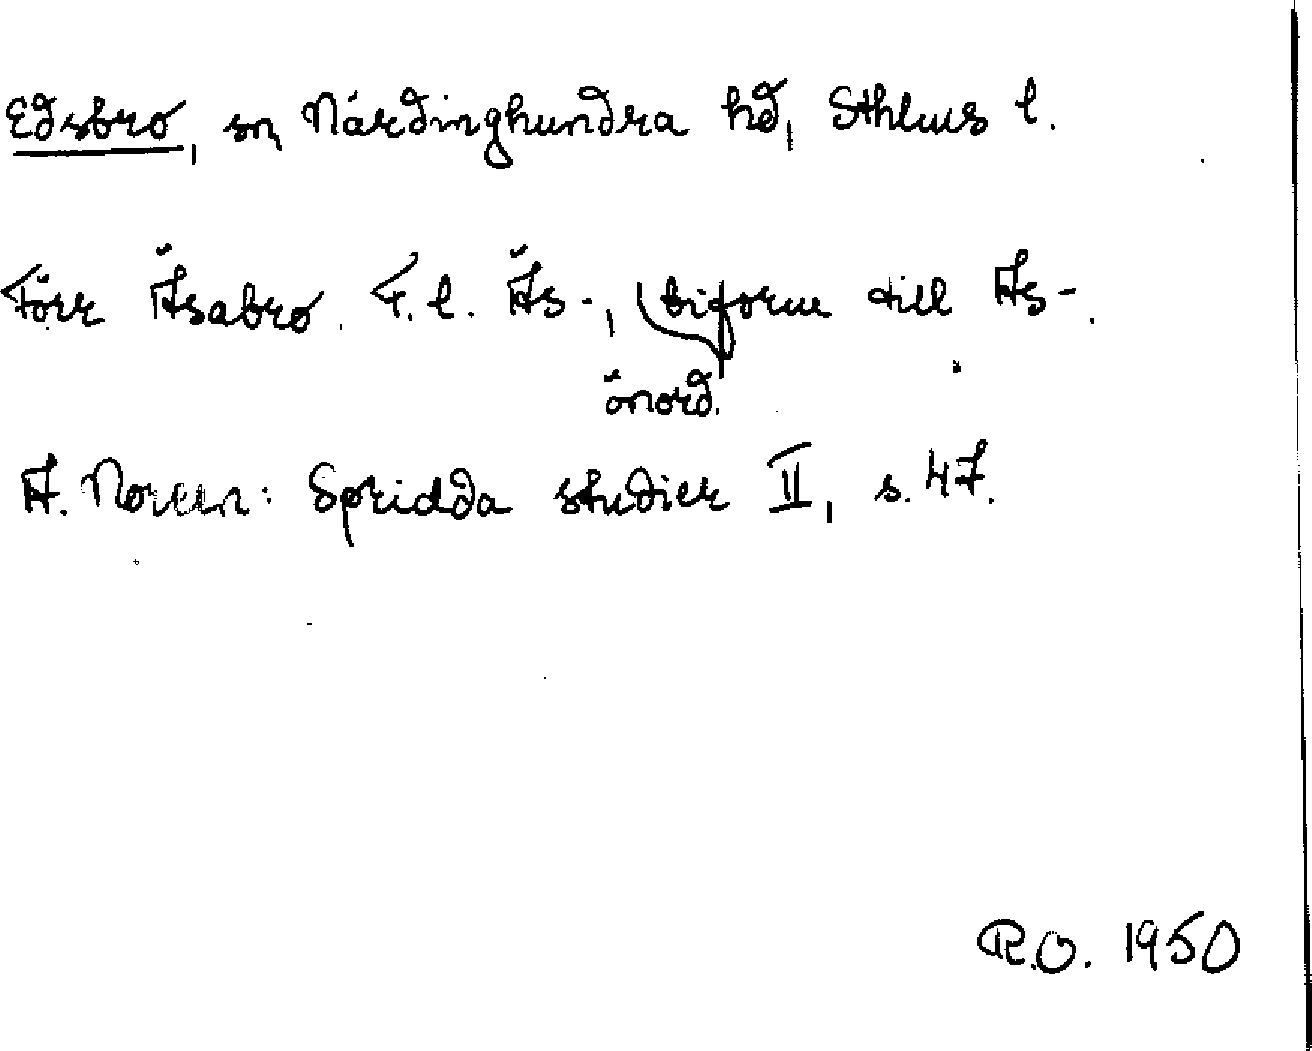 Edsbro, sn, Närdinghundra hd, Sthlms l.
Förr Äsabro. F. l. Äs-, biform till As-.
önord.
A. Noreen: Spridda studier II, s. 47.
R.O. 1950